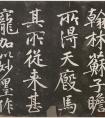 翰林蘇子瞻
所得天廄馬
其所從來甚
寵加妙墨作